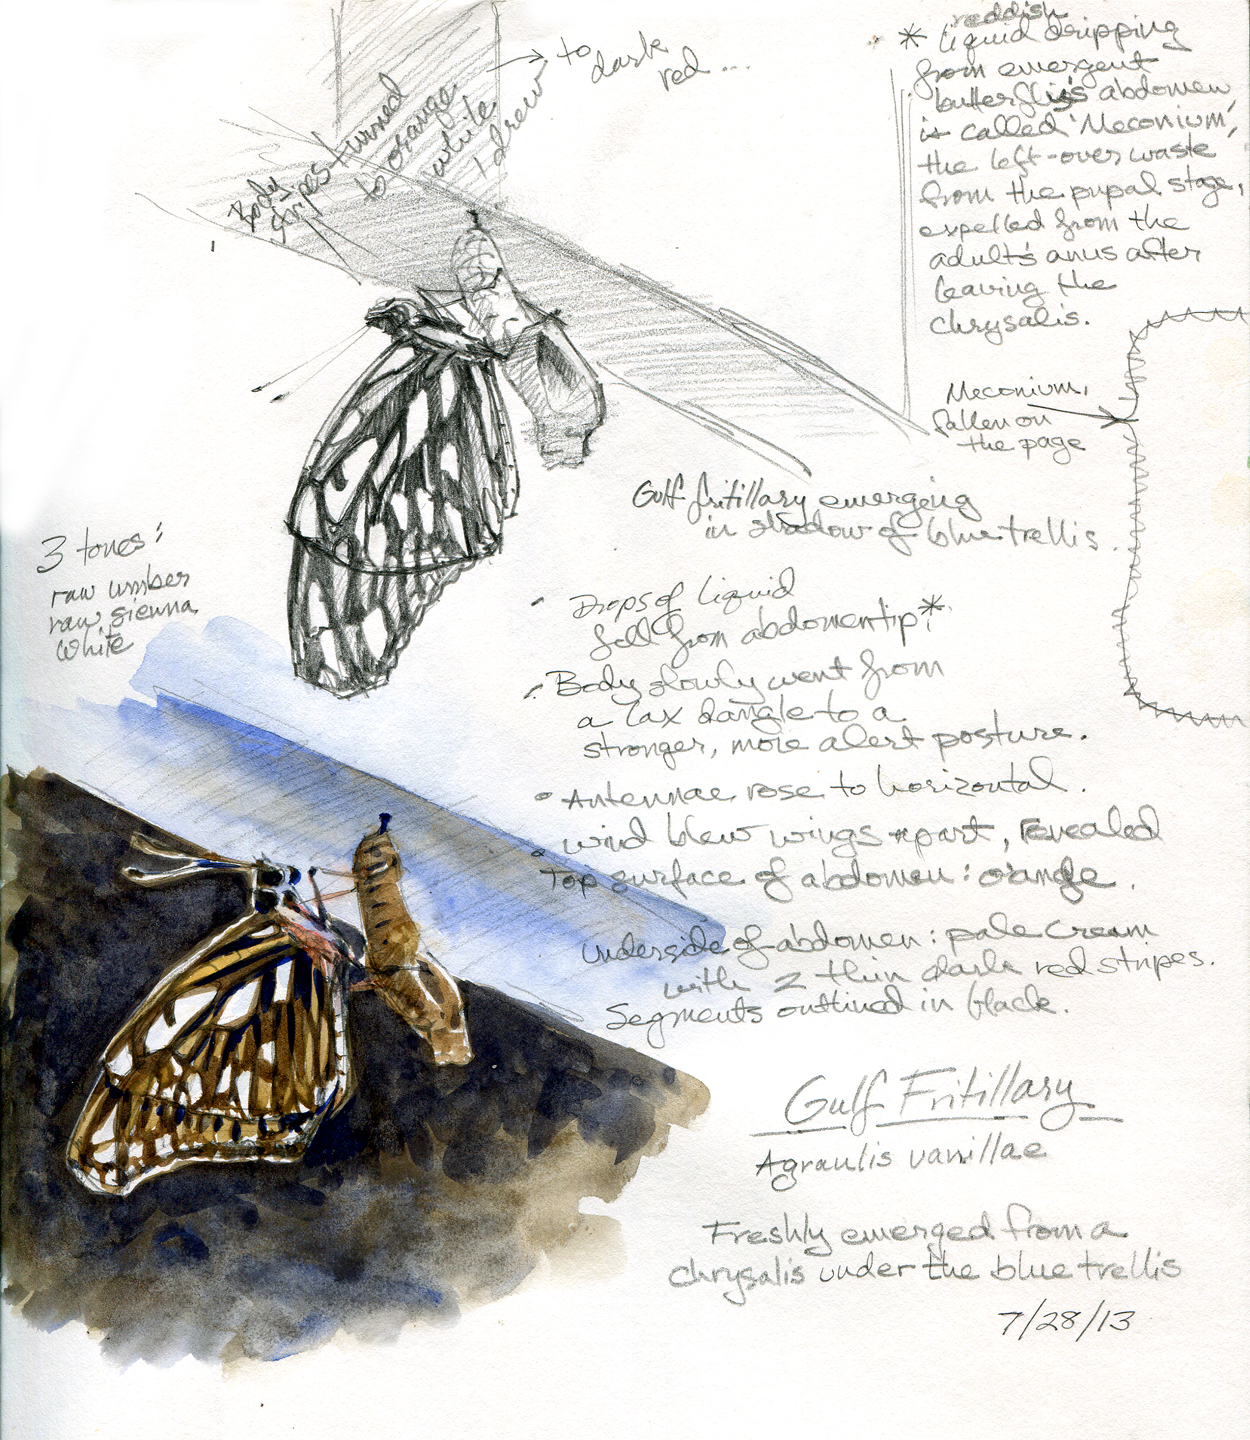 Body
stripes turned
to orange
while
I drew
to
dark
red ...
* reddish
liquid dripping
from emergent
butterfly's abdomen
is called 'Meconium',
the left-over waste
from the pupal stage,
expelled from the
adult's anus after
leaving the
chrysalis.
Meconium,
fallen on
the page
Gulf fritillary emerging
in shadow of blue trellis.
3 tones:
raw umber
raw sienna
white
- Drops of liquid
fell from abdomen tip.*
- Body slowly went from
a lax dangle to a
stronger, more alert posture.
• Antennae rose to horizontal.
• wind blew wings apart, revealed
top surface of abdomen: orange.
underside of abdomen: pale cream
with 2 thin dark red stripes.
Segments outlined in black.
Gulf Fritillary
Agraulis vanillae
Freshly emerged from a
chrysalis under the blue trellis
7/28/13